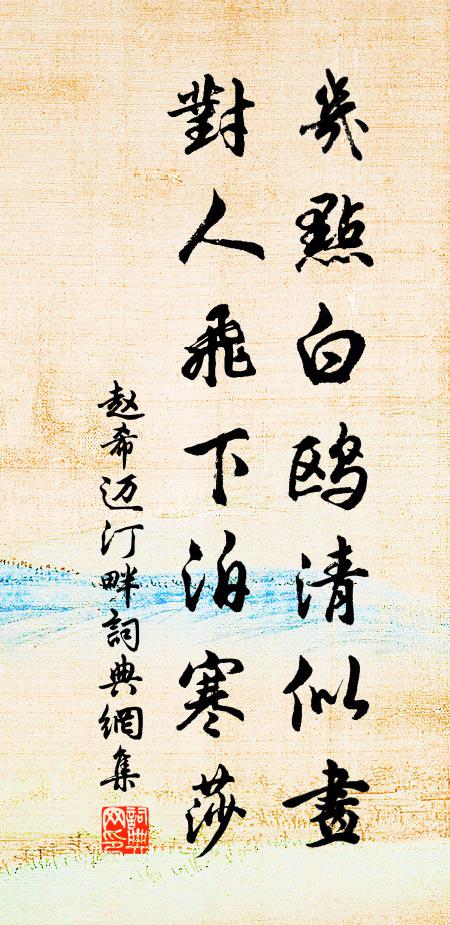 幾點白鸥清似畫
對人飛下泊寒莎
赵希迈汀畔詞典網集